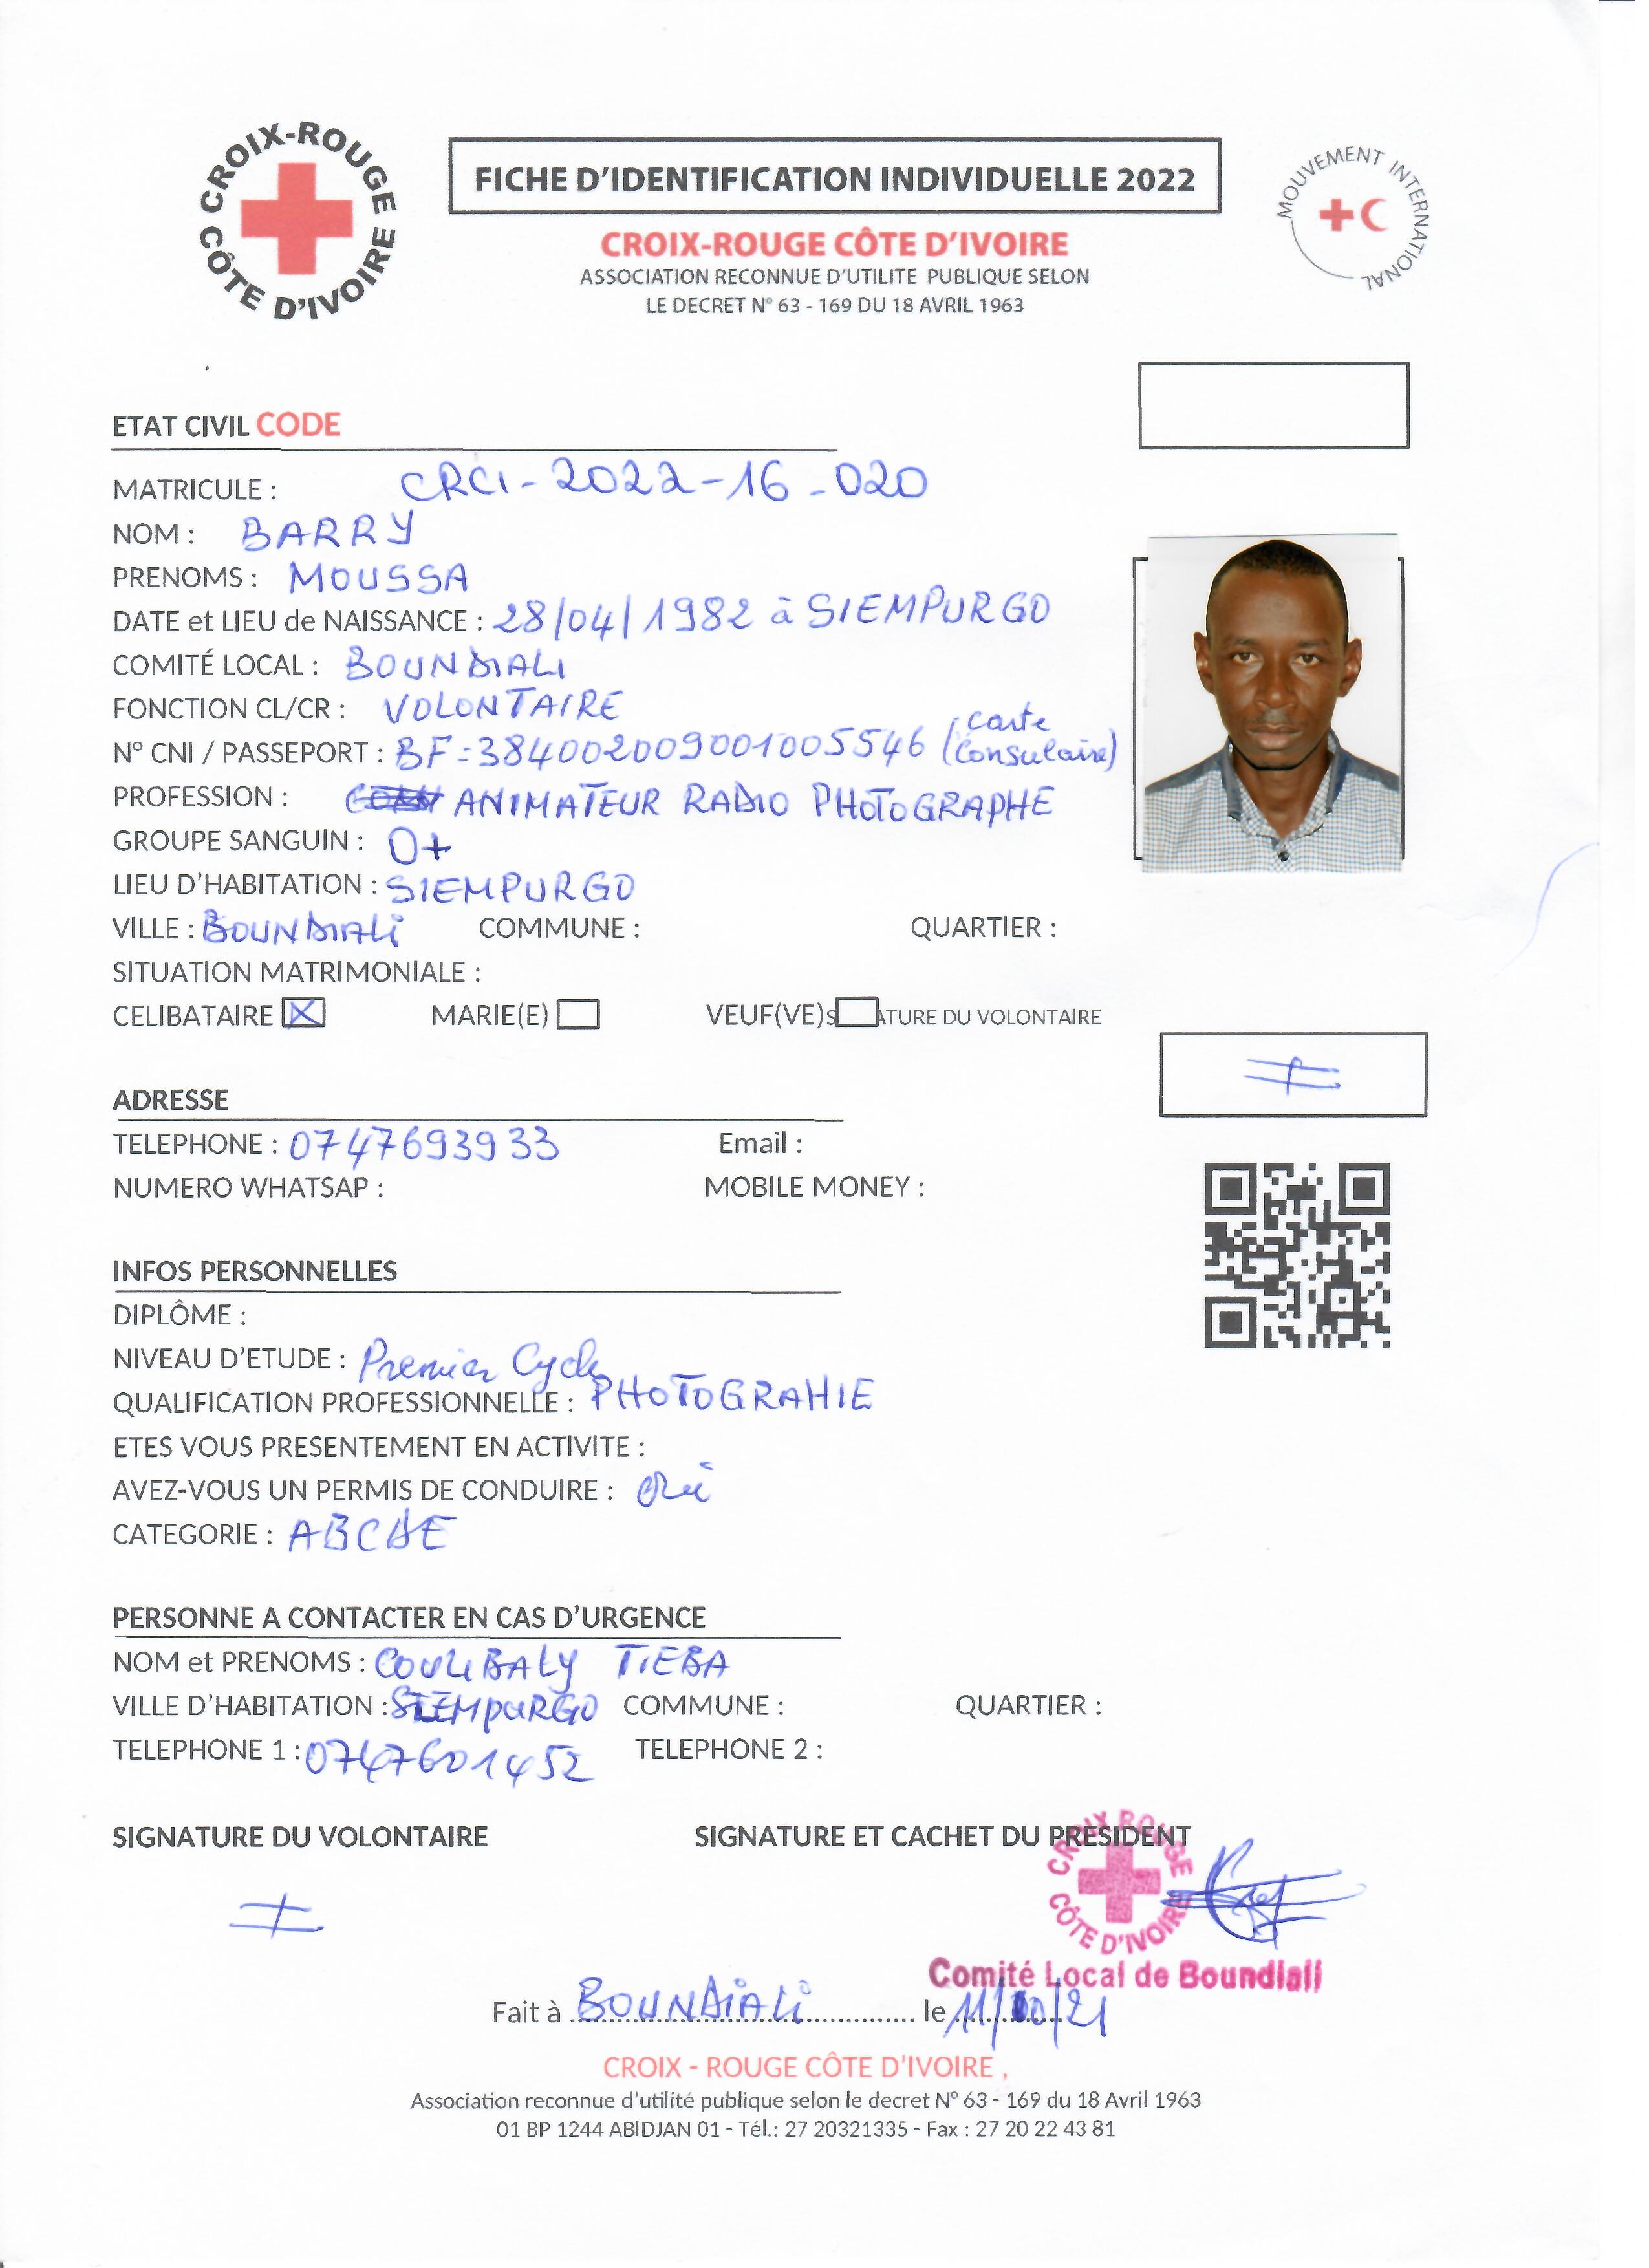 CROIX-ROUGE CÔTE D'IVOIRE
FICHE D'IDENTIFICATION INDIVIDUELLE 2022
MOUVEMENT INTERNATIONAL
CROIX-ROUGE CÔTE D'IVOIRE
ASSOCIATION RECONNUE D'UTILITE PUBLIQUE SELON
LE DECRET N° 63 - 169 DU 18 AVRIL 1963
ETAT CIVIL CODE
MATRICULE : CRCI-2022-16-020
NOM : BARRY
PRENOMS : MOUSSA
DATE et LIEU de NAISSANCE : 28/04/1982 à SIEMPURGO
COMITÉ LOCAL : BOUNDIALI
FONCTION CL/CR : VOLONTAIRE
N° CNI / PASSEPORT : BF:384002009001005546 (Carte Consulaire)
PROFESSION : ANIMATEUR RADIO PHOTOGRAPHE
GROUPE SANGUIN : O+
LIEU D'HABITATION : SIEMPURGO
VILLE : BOUNDIALI COMMUNE : QUARTIER :
SITUATION MATRIMONIALE :
CELIBATAIRE X MARIE(E) VEUF(VE) S ATURE DU VOLONTAIRE
ADRESSE
TELEPHONE : 0747693933 Email :
NUMERO WHATSAP : MOBILE MONEY :
INFOS PERSONNELLES
DIPLÔME :
NIVEAU D'ETUDE : Premier Cycle
QUALIFICATION PROFESSIONNELLE : PHOTOGRAHIE
ETES VOUS PRESENTEMENT EN ACTIVITE :
AVEZ-VOUS UN PERMIS DE CONDUIRE : Oui
CATEGORIE : ABCDE
PERSONNE A CONTACTER EN CAS D'URGENCE
NOM et PRENOMS : COULIBALY TIEBA
VILLE D'HABITATION : SIEMPURGO COMMUNE : QUARTIER :
TELEPHONE 1 : 0747601452 TELEPHONE 2 :
SIGNATURE DU VOLONTAIRE SIGNATURE ET CACHET DU PRESIDENT
CROIX ROUGE CÔTE D'IVOIRE
Comité Local de Boundiali
Fait à BOUNDIALI le 11/10/21
CROIX - ROUGE CÔTE D'IVOIRE ,
Association reconnue d'utilité publique selon le decret N° 63 - 169 du 18 Avril 1963
01 BP 1244 ABIDJAN 01 - Tél.: 27 20321335 - Fax : 27 20 22 43 81